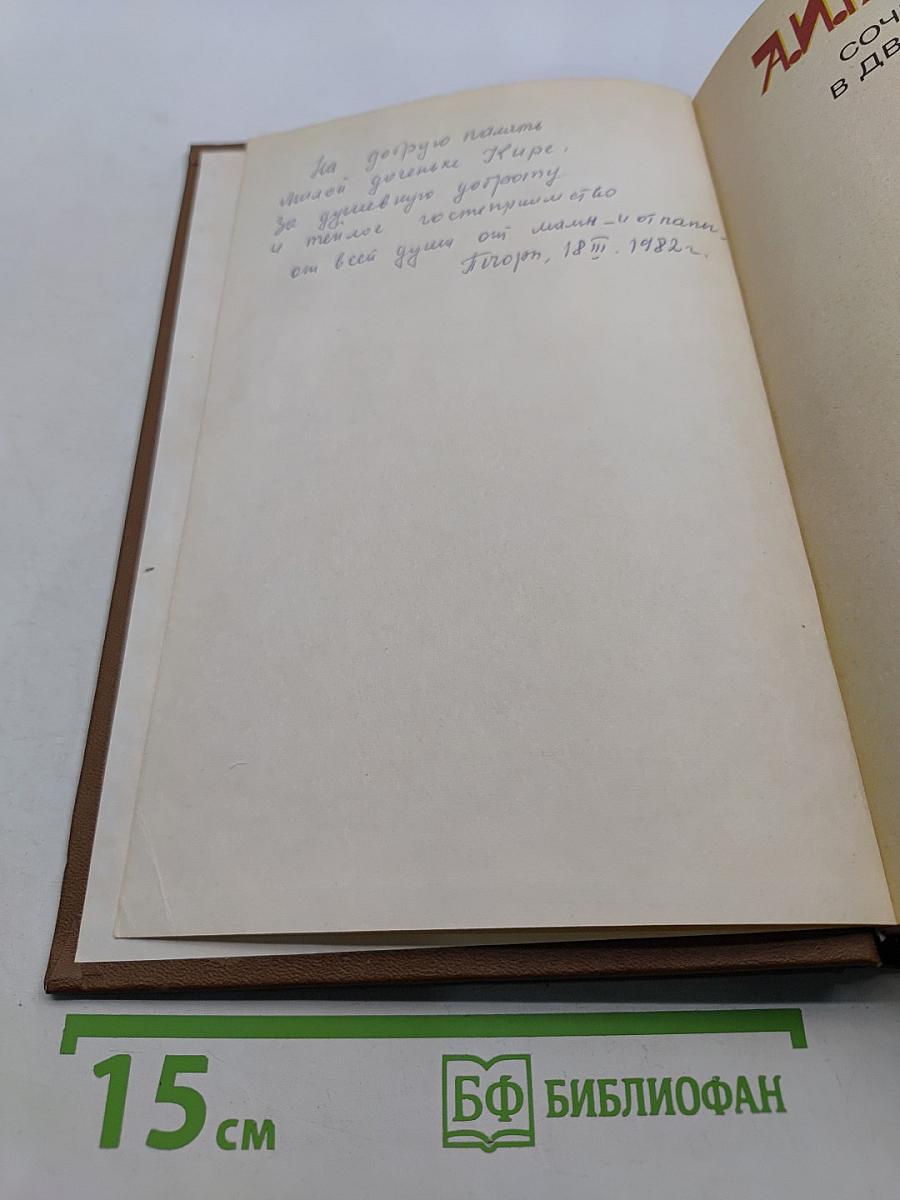 На добрую память
милой доченьке Кире.
За душевную доброту
и теплое гостеприимство
от всей души от мамы и от папы.
18 III. 1982 г.
А.И.
СОЧ
В ДВ
15 см
БФ БИБЛИОФАН